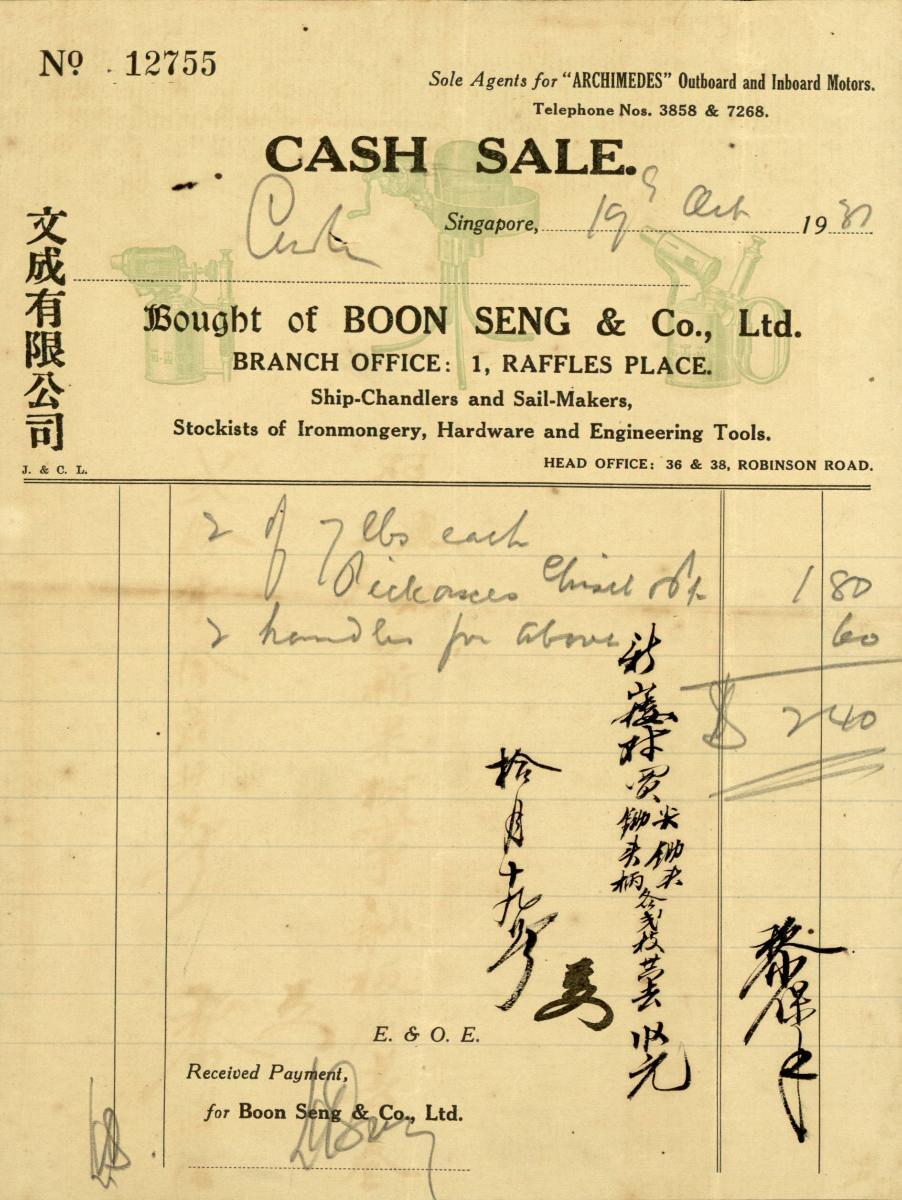 Nº 12755
Sole Agents for "ARCHIMEDES" Outboard and Inboard Motors.
Telephone Nos. 3858 & 7268.
CASH SALE.
Singapore, 19th Oct 1931
文成有限公司
Bought of BOON SENG & Co., Ltd.
BRANCH OFFICE: 1, RAFFLES PLACE.
Ship-Chandlers and Sail-Makers,
Stockists of Ironmongery, Hardware and Engineering Tools.
J. & C. L.
HEAD OFFICE: 36 & 38, ROBINSON ROAD.
2 of 7 lbs each
Pickaxes Chisel & Pt 1 80
2 handles for above 60
$ 2 40
買尖鋤头
鋤头柄各弍枝
拾月十九号
E. & O. E.
Received Payment,
for Boon Seng & Co., Ltd.